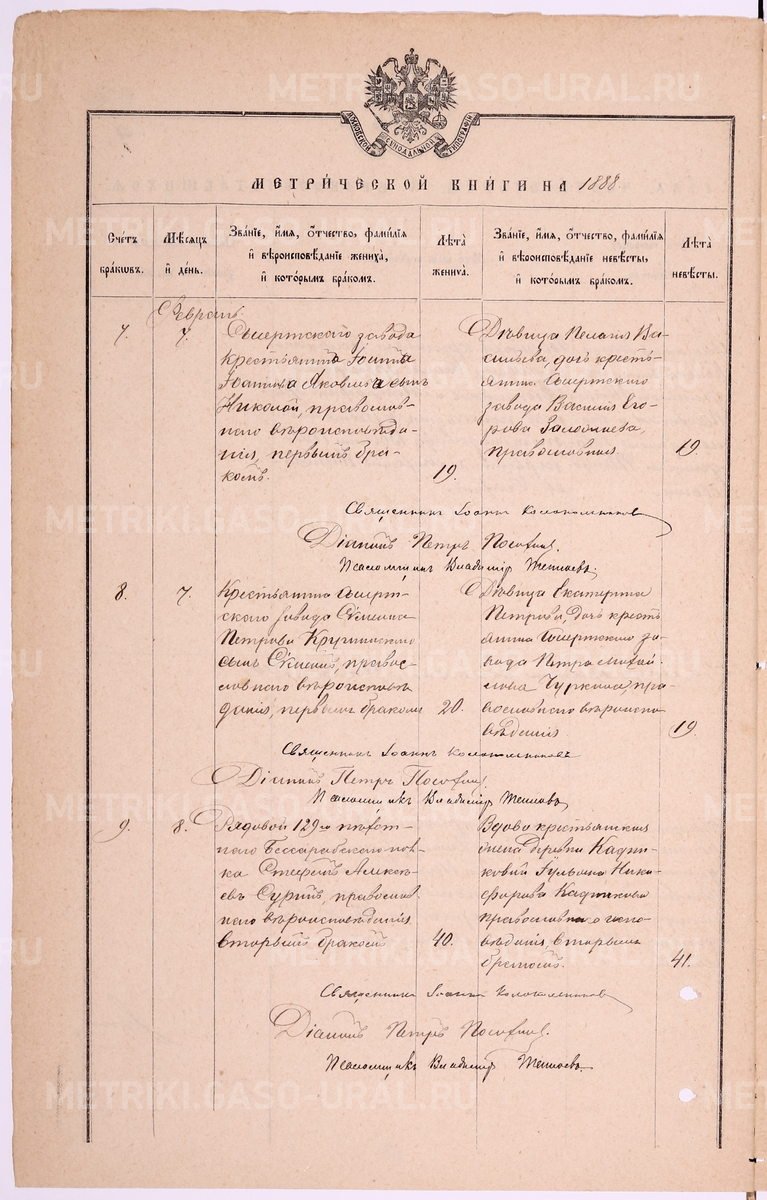 МОСКОВСКОЙ СѴНОДАЛЬНОЙ ТИПОГРАФІИ
МЕТРИЧЕСКОЙ КНИГИ НА 1888.
Счетъ браковъ.
Мѣсяцъ и день.
Званіе, имя, отчество, фамилія и вѣроисповѣданіе жениха, и которымъ бракомъ.
Лѣта жениха.
Званіе, имя, отчество, фамилія и вѣроисповѣданіе невѣсты, и которымъ бракомъ.
Лѣта невѣсты.
Февраль.
7.
7.
Сысертскаго завода
крестьянина
Іоанна Яковлева сынъ
Николай, православ-
наго вѣроисповѣда-
нія, первымъ бра-
комъ.
19.
Дѣвица Пелагія Ва-
сильева, дочь кресть-
янина Сысертскаго
завода Василія Его-
рова
православная.
19.
Священникъ Іоаннъ Колокольниковъ
Діаконъ Петръ
Псаломщикъ Владиміръ
8.
7.
Крестьянина Сысерт-
скаго завода
Петрова
сынъ, правос-
лавнаго вѣроисповѣ-
данія, первымъ бракомъ
20.
Дѣвица Екатерина
Петрова, дочь кресть-
янина Сысертскаго за-
вода Петра Михай-
лова Чуркина, пра-
вославнаго вѣроиспо-
вѣданія
19.
Священникъ Іоаннъ Колокольниковъ
Діаконъ Петръ
Псаломщикъ Владиміръ
9.
8.
Рядовой 129го пѣхот-
наго Бессарабскаго пол-
ка Стефанъ Алексѣ-
евъ, православ-
наго вѣроисповѣданія
вторымъ бракомъ
40.
Вдова крестьянская
жена деревни Кадни-
ковой Іуліана Ники-
форова Кадникова
православнаго испо-
вѣданія, вторымъ
бракомъ.
41.
Священникъ Іоаннъ Колокольниковъ
Діаконъ Петръ
Псаломщикъ Владиміръ
METRIKI.GASO-URAL.RU